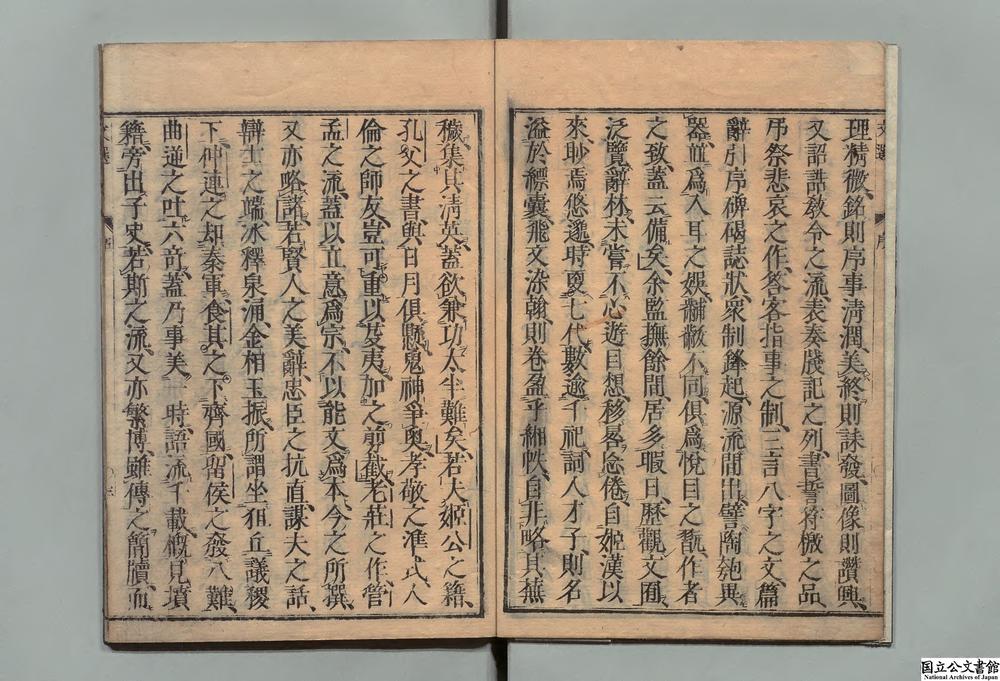 理精微銘則序事淸潤美終則誄發圖像則讚興
又詔誥敎令之流表奏牋記之列書誓符檄之品
弔祭悲哀之作答客指事之制三言八字之文篇
辭引序碑碣誌狀衆制鋒起源流間出譬陶匏異
器並爲入耳之娛黼黻不同俱爲悅目之翫作者
之致蓋云備矣余監撫餘閒居多暇日歷觀文囿
泛覽辭林未嘗不心遊目想移晷忘倦自姬漢以
來眇焉悠邈時更七代數逾千祀詞人才子則名
溢於縹囊飛文染翰則卷盈乎緗帙自非略其蕪
穢集其淸英蓋欲兼功太半難矣若夫姬公之籍
孔父之書與日月俱懸鬼神爭奧孝敬之準式人
倫之師友豈可重以芟夷加之剪截老莊之作管
孟之流蓋以立意爲宗不以能文爲本今之所撰
又亦略諸若賢人之美辭忠臣之抗直謀夫之話
辯士之端冰釋泉涌金相玉振所謂坐狙丘議稷
下仲連之却秦軍食其之下齊國留侯之發八難
曲逆之吐六奇蓋乃事美一時語流千載槪見墳
籍旁出子史若斯之流又亦繁博雖傳之簡牘而
文選
序
三
国立公文書館
National Archives of Japan